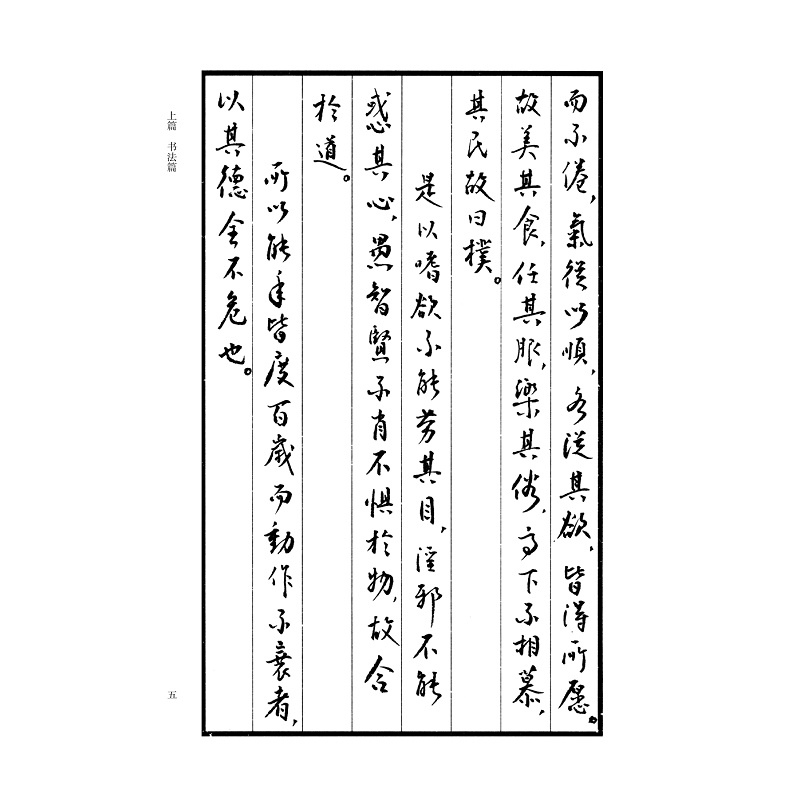 而不倦，氣從以順，各從其欲，皆得所愿。
故美其食，任其服，樂其俗，高下不相慕，
其民故曰樸。
是以嗜欲不能勞其目，淫邪不能
惑其心，愚智賢不肖不懼於物，故合
於道。
所以能年皆度百歲而動作不衰者，
以其德全不危也。
上篇 书法篇
五